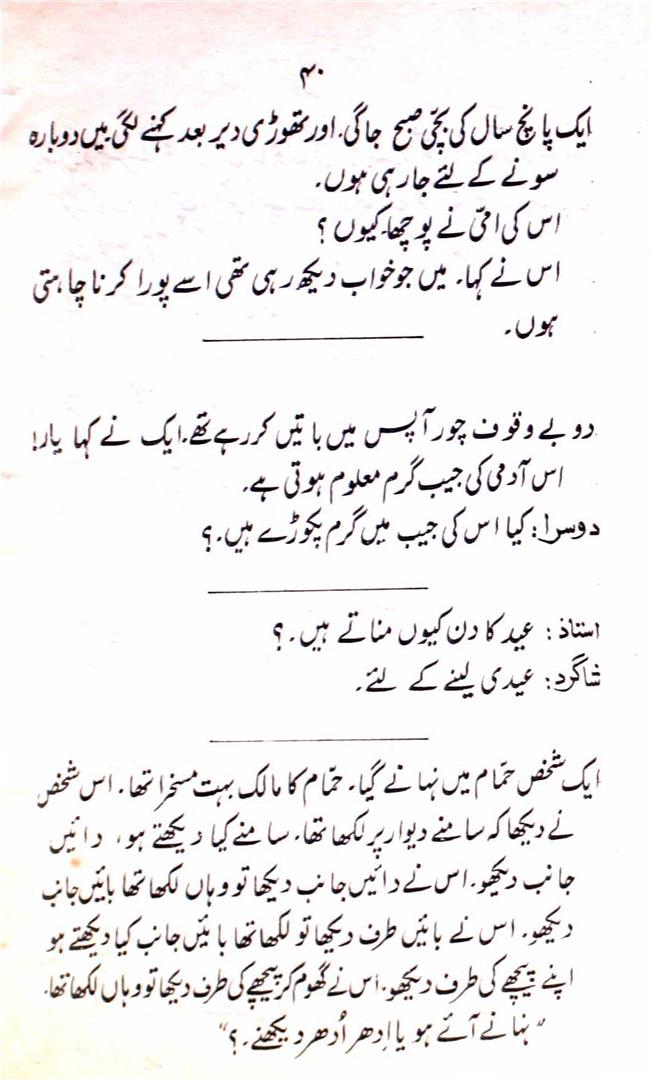 ۴۰
ایک پانچ سال کی بچّی صبح جاگی۔ اور تھوڑی دیر بعد کہنے لگی میں دوبارہ
سونے کے لئے جا رہی ہوں۔
اس کی امّی نے پوچھا۔ کیوں ؟
اس نے کہا۔ میں جو خواب دیکھ رہی تھی اسے پورا کرنا چاہتی
ہوں۔
دو بے وقوف چور آپس میں باتیں کر رہے تھے۔ ایک نے کہا یار!
اس آدمی کی جیب گرم معلوم ہوتی ہے۔
دوسرا: کیا اس کی جیب میں گرم پکوڑے ہیں۔؟
استاذ: عید کا دن کیوں مناتے ہیں۔؟
شاگرد: عیدی لینے کے لئے۔
ایک شخص حمّام میں نہانے گیا۔ حمّام کا مالک بہت مسخرا تھا۔ اس شخص
نے دیکھا کہ سامنے دیوار پر لکھا تھا۔ سامنے کیا دیکھتے ہو، دائیں
جانب دیکھو۔ اس نے دائیں جانب دیکھا تو وہاں لکھا تھا بائیں جانب
دیکھو۔ اس نے بائیں طرف دیکھا تو لکھا تھا بائیں جانب کیا دیکھتے ہو
اپنے پیچھے کی طرف دیکھو۔ اس نے گھوم کر پیچھے کی طرف دیکھا تو وہاں لکھا تھا۔
"نہانے آئے ہو یا اِدھر اُدھر دیکھنے۔؟"